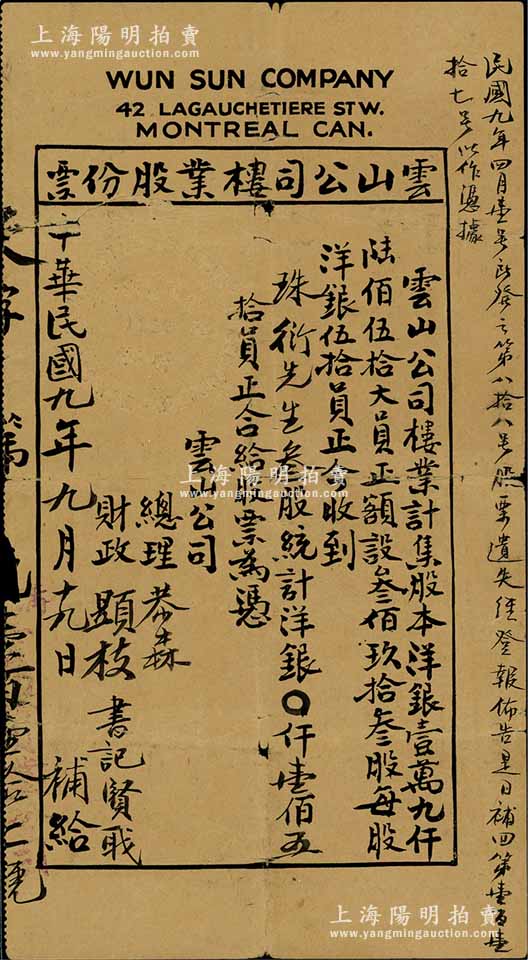 上海陽明拍賣
www.yangmingauction.com
WUN SUN COMPANY
42 LAGAUCHETIERE ST W.
MONTREAL CAN.
雲山公司樓業股份票
民國九年四月壹号所發之第八拾八号股票遺失經登報佈告是日補回第壹百壹
拾七号以作憑據
雲山公司樓業計集股本洋銀壹萬九仟
陸佰伍拾大員正額設叁佰玖拾叁股每股
洋銀伍拾員正今收到
珠衍先生叁股統計洋銀〇仟壹佰五
拾員正合給股票為憑
雲山公司
總理 恭森
財政 顕枝 書記賢戢
中華民國九年九月十九日 補給
字 第 壹百壹拾七號
上海陽明拍賣
www.yangmingauction.com
上海陽明拍賣
www.yangmingauction.com